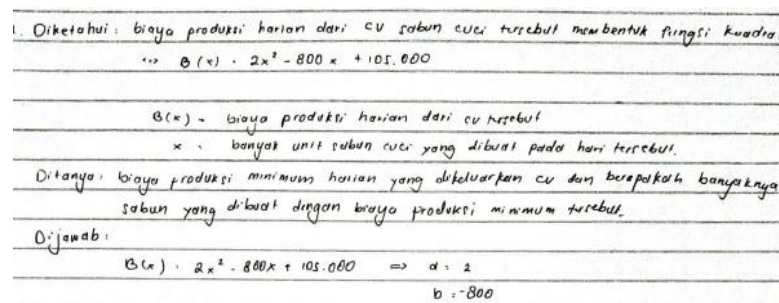 . Diketahui : biaya produksi harian dari cv sabun cuci tersebut membentuk fungsi kuadra
↔ B(x) = 2x² - 800x + 105.000
B(x) = biaya produksi harian dari cv tersebut
x = banyak unit sabun cuci yang dibuat pada hari tersebut.
Ditanya : biaya produksi minimum harian yang dikeluarkan cv dan berapakah banyaknya
sabun yang dibuat dengan biaya produksi minimum tersebut.
Dijawab :
B(x) : 2x² - 800x + 105.000 ⇒ a = 2
b = -800